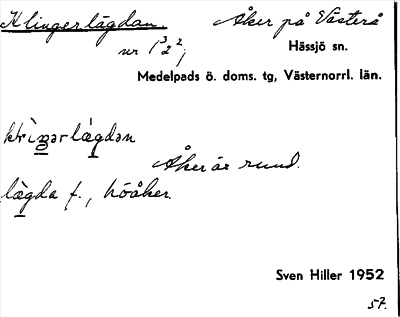 Klingerlägdan. Åker på Västerå
nr 1³2², Hässjö sn.
Medelpads ö. doms. tg, Västernorrl. län.
lägdan
Åker är rund.
lägda f., höåker.
Sven Hiller 1952
57.